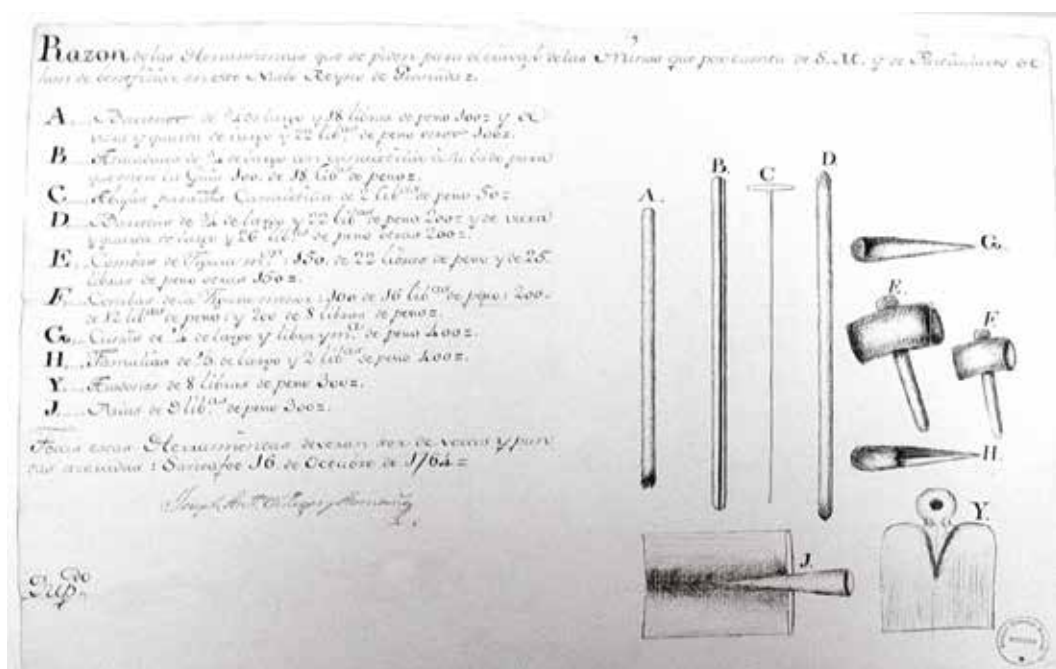 Razon de las Herramientas que se piden para el travajo de las Minas que por cuenta de S. M. y de Particulares se
han de beneficiar en este Nuebo Reyno de Granada =
A. de 3/4 de largo y 18 libras de peso 100 = y de
vara y quarta de largo y 22 lib.as de peso otros 100 =
B. de 3/4 de largo con para
que entre la Guia 100. de 18 lib.as de peso =
C. para de 2 lib.as de peso 50 =
D. Barretas de 3/4 de largo y 22 lib.as de peso 200 = y de vara
y quarta de largo y 26 lib.as de peso otras 200 =
E. Combas de Figura m.or: 150. de 22 libras de peso y de 25
libras de peso otras 150 =
F. Combas de la Figura menor: 100 de 16 lib.as de peso: 200.
de 12 lib.as de peso: y 200 de 8 libras de peso =
G. Cuñas de 1/4 de largo y libra y m.a de peso 400 =
H. de largo y 2 lib.as de peso 400 =
Y. de 8 libras de peso 300 =
J. de 9 lib.as de peso 300 =
Todas estas Herramientas deveran ser de y pun
tas azeradas: Santafee 16 de Octubre de 1764 =
Joseph Ant.o
Dup.do
A.
B.
C
D.
G.
E.
F
H.
J.
Y.